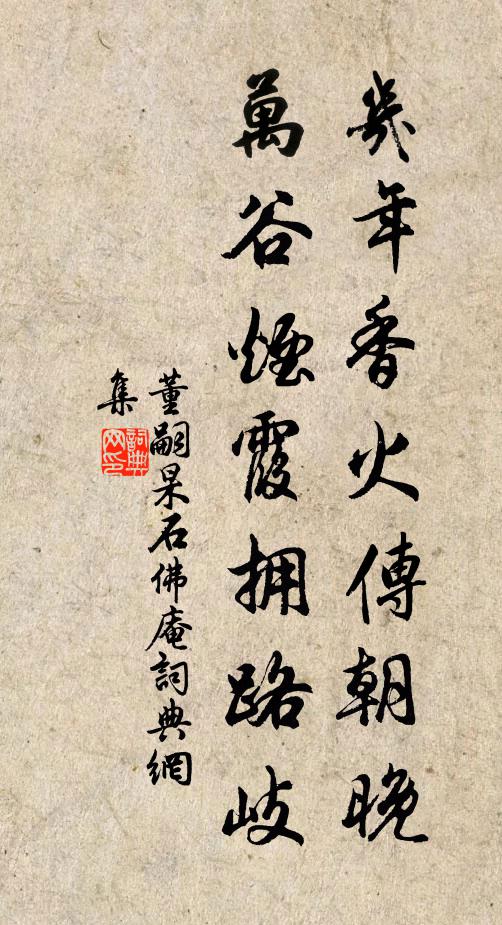 幾年香火傳朝晚
萬谷煙霞拥路歧
董嗣杲石佛庵詞典網
集
詞典
网印